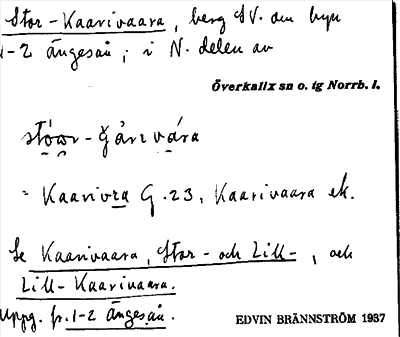 Stor-Kaarivaara, berg SV. om byn
1-2 Ängesån, i N. delen av
Överkalix sn o. tg Norrb. l.
stóω̄r-gårivára
= Kaarivara G. 23, Kaarivaara ek.
Se Kaarivaara, Stor- och Lill-, och
Lill-Kaarivaara.
Uppg. fr. 1-2 Ängesån.
EDVIN BRÄNNSTRÖM 1937